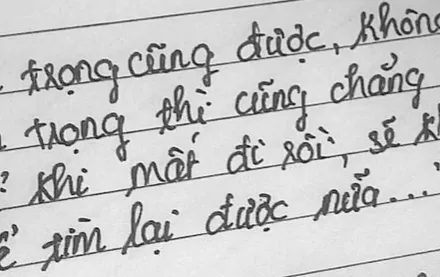 trọng cũng được, không
trọng thì cũng chẳng
? khi mất đi rồi, sẽ
tìm lại được nữa...